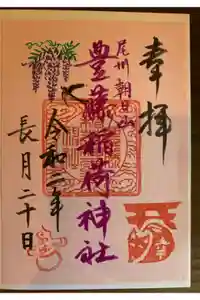 奉拝
尾州 朝日山
豊藤稲荷神社
令和二年
長月二十日